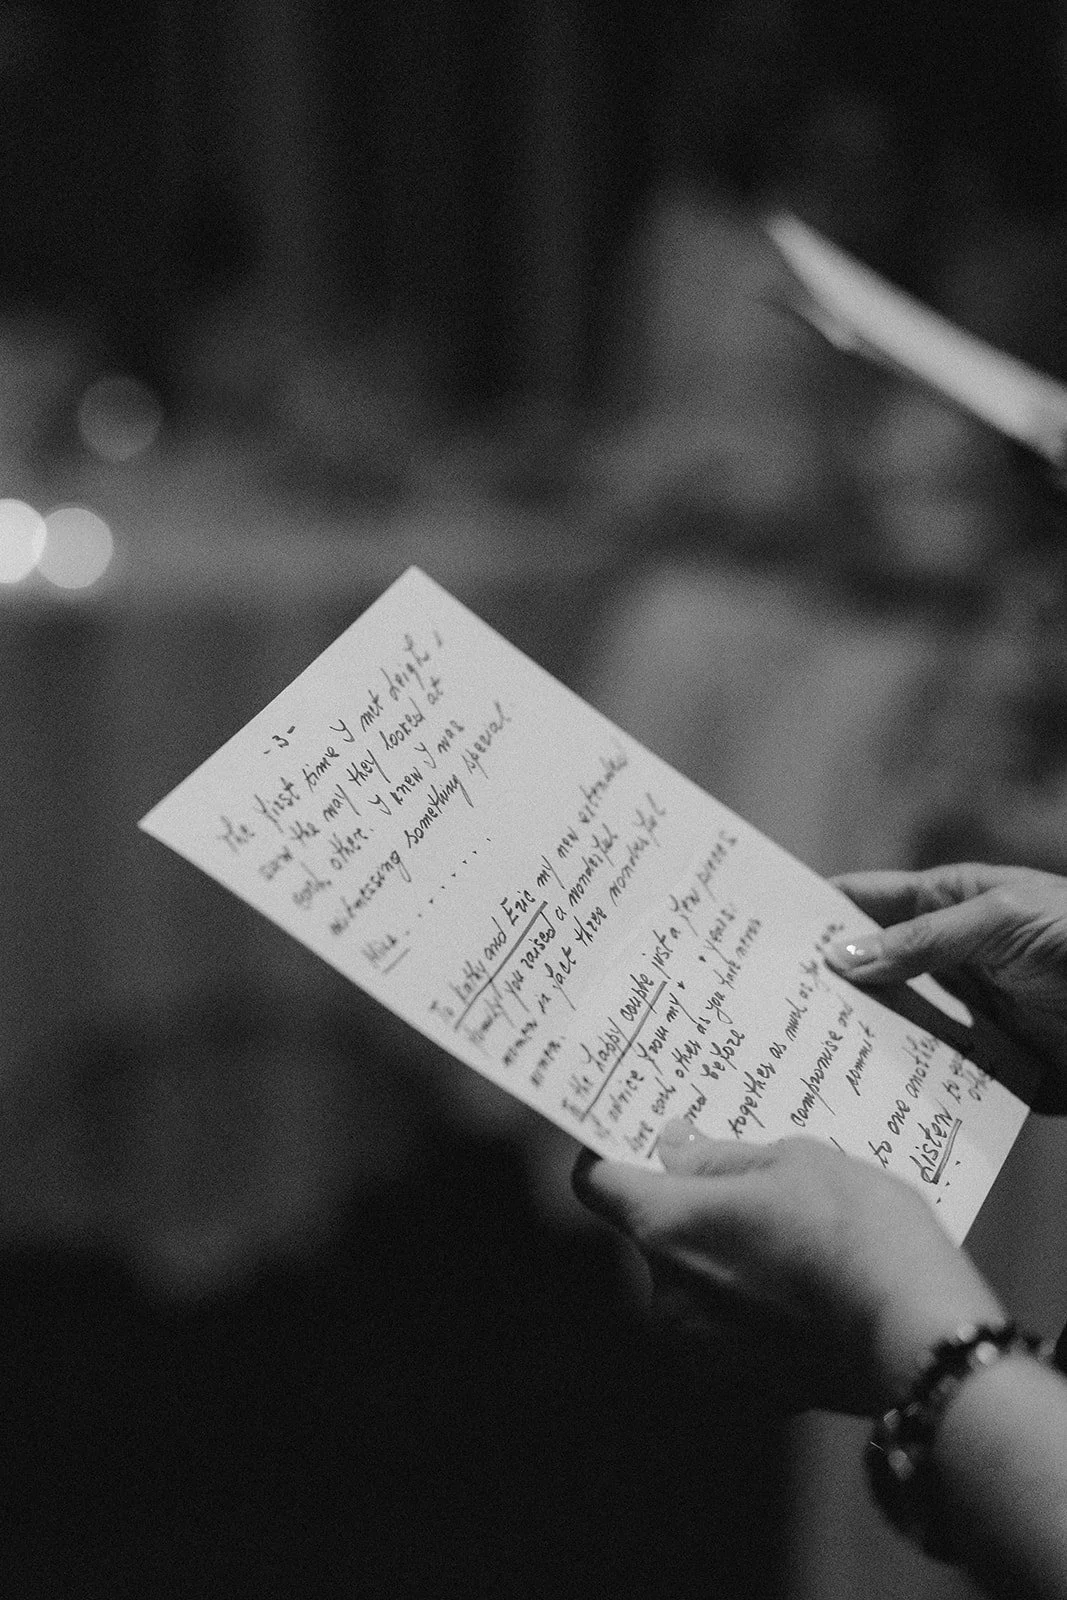 -3-
The first time I met Leigh,
saw the way they looked at
each other. I knew I was
witnessing something special.
To Kathy and Eric my new extended
family! you raised a wonderful
women in fact three wonderful
women.
To the happy couple just a few pieces
of advice from my " " years.
Love each other as you have never
before
together as much as you can
compromise and
commit
to one another
Listen to